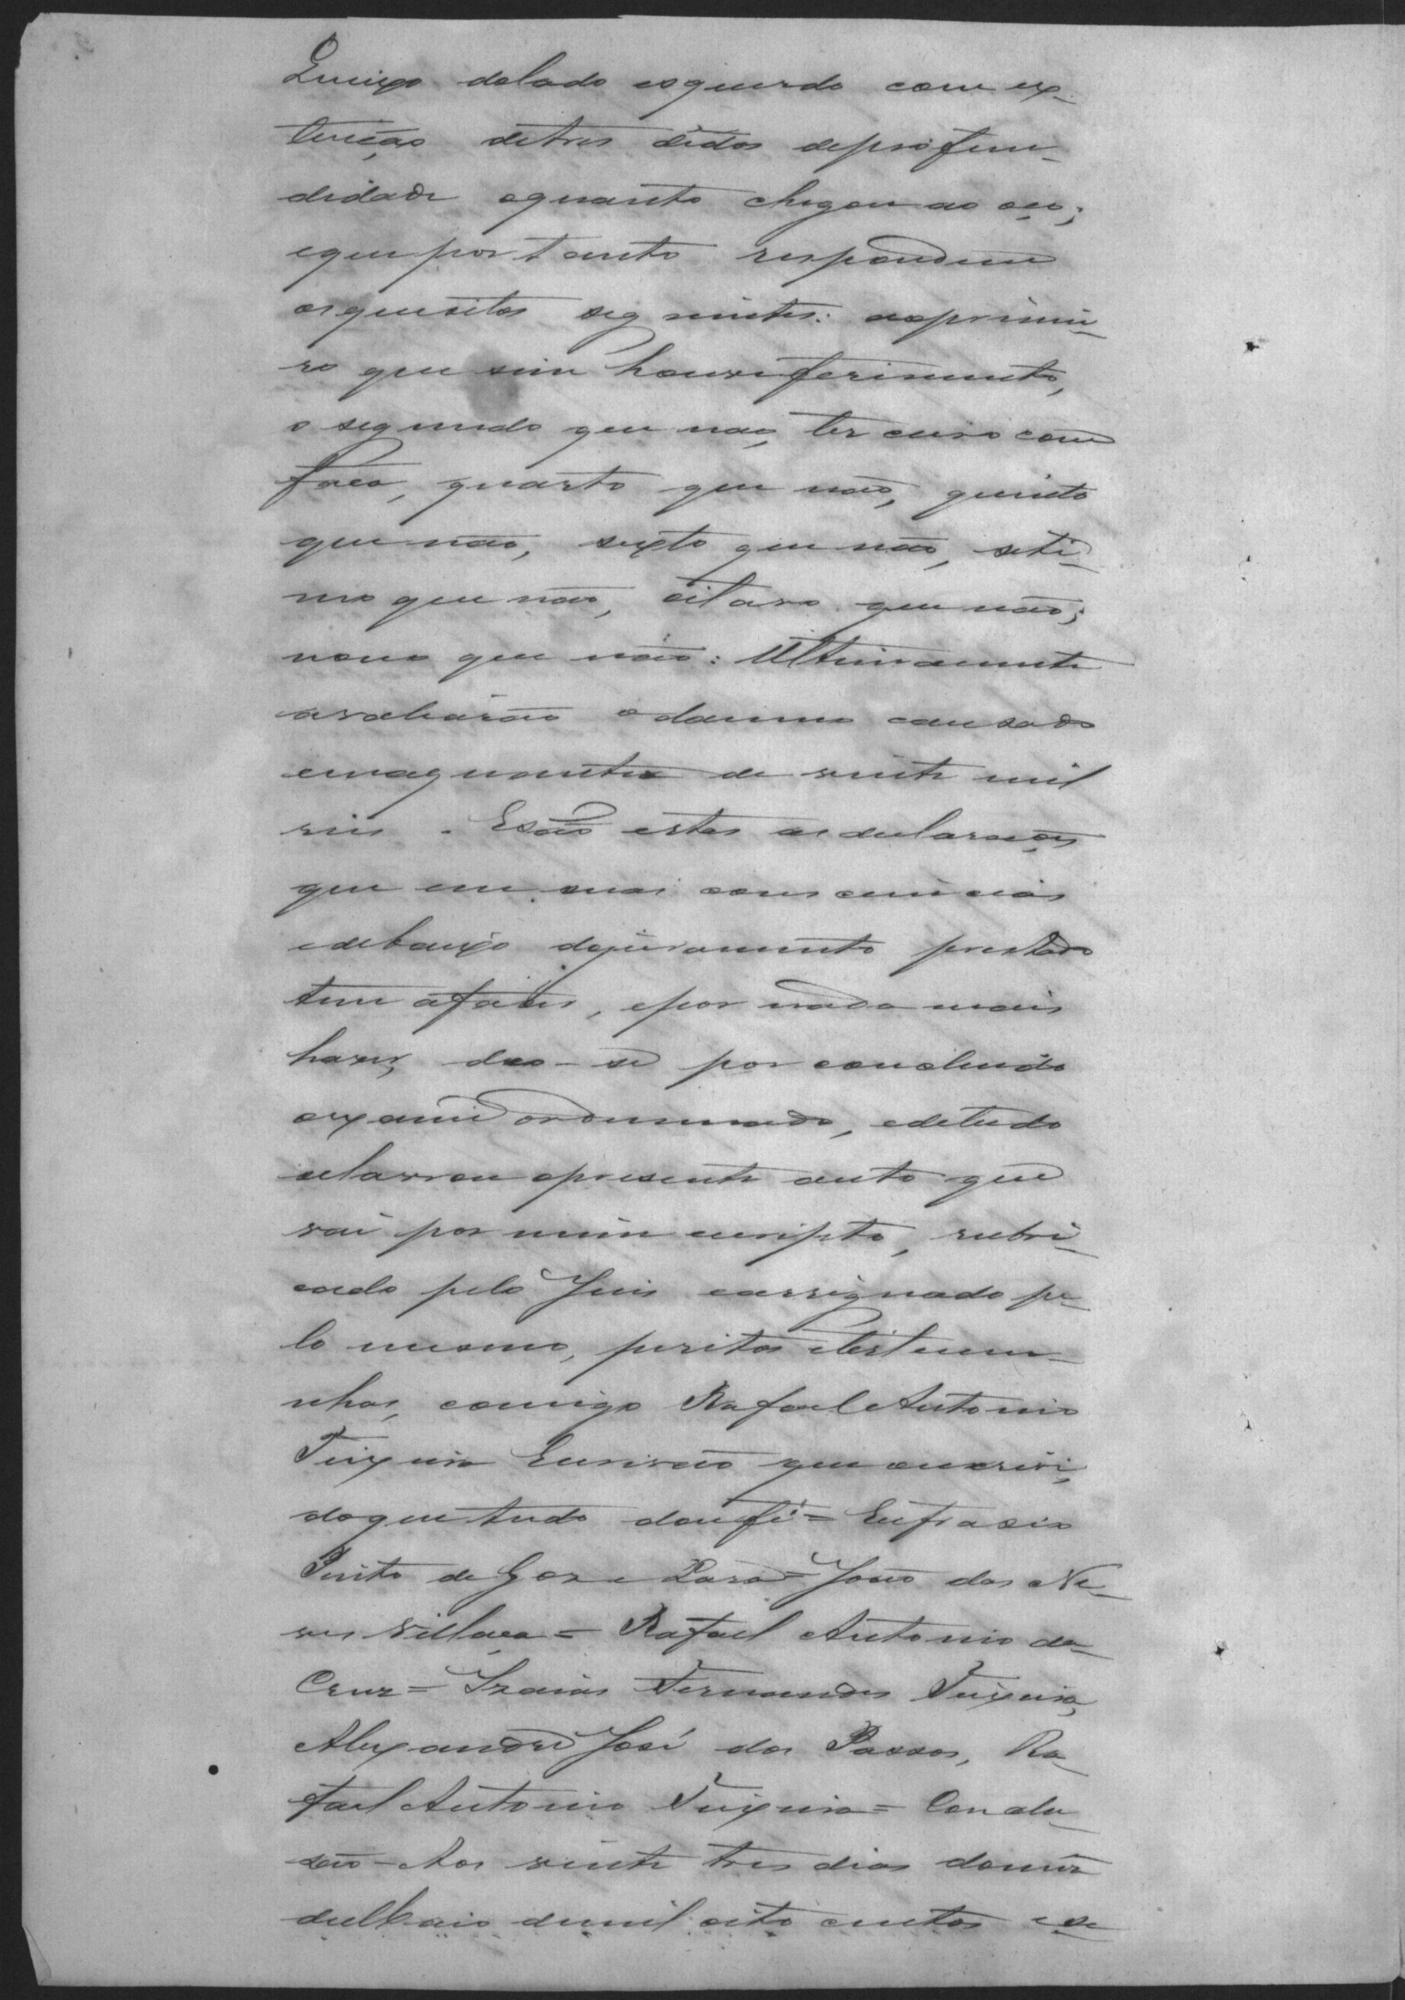 Queixo dolado esquerdo com ex-
tenção detres dedos deprofun-
didade equanto chegou ao oço;
eque por tanto respondem
os quesitos seguintes: aoprimei-
ro que sim houve ferimento,
o segundo que não, terceiro com
faca, quarto que não, quinto
que não, sexto que não, seti-
mo que não, oitavo que não;
nono que não: Ultimamente
avaliarão odamno causado
emaquantia de vinte mil
reis. E são estas as declarações
que em suas consciencias
edebaixo dojuramento prestado
tem afazer, epor nada mais
haver, deo-se por concluido
oexame ordennado, edetudo
selavrou opresente auto que
vai por mim escripto, rubri-
cado pelo Juis eassignado pe-
lo mesmo, peritos etestemu-
nhas, comigo Rafael Antonio
Teixeira Escrivão que oescrivi,
doque tudo dou fé = Eufrasio
Pinto de Goz = João das Ne-
ves Villaça = Rafael Antonio da
Cruz = Izaias Fernandes Teixeira,
Alexandre José dos Passos, Ra-
fael Antonio Teixeira = Conclu-
são - Aos vinte tres dias domez
deMaio demil oito centos e se